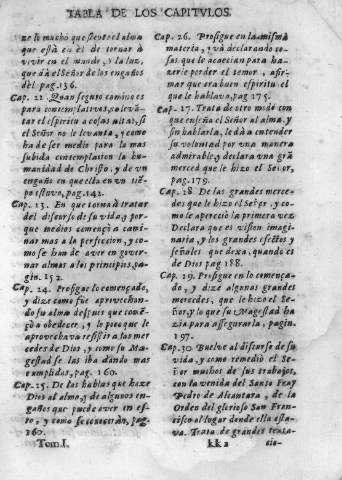 TABLA DE LOS CAPITVLOS.
ze lo mucho que siente el alma
que està en èl de tornar à
vivir en el mundo, y la luz,
que dà el Señor de los engaños
del pag. 136.
Cap. 22. Quan seguro camino es
para contemplativos, no levã-
tar el espiritu a cosas altas, si
el Señor no le levanta, y como
ha de ser medio para la mas
subida contemplacion la hu-
manidad de Christo, y de un
engaño en que ella en un tiẽ-
po estuvo, pag. 143.
Cap. 23. En que torna à tratar
del discurso de su vida, y por-
que medios començò a cami-
nar mas a la perfeccion, y co-
mo se han de aver en gover-
nar almas a los principios, pa-
gin. 152.
Cap. 24. Prosigue lo començado,
y dize como fue aprovechan-
do su alma despues que comẽ-
çò a obedecer, y lo poco que le
aprovechava resistir a las mer
cedes de Dios, y como su Ma-
gestad se las iba dando mas
cumplidas, pag. 160.
Cap. 25. De las hablas que haze
Dios al alma, y de algunos en-
gaños que puede aver en es-
to, y como se conoceràn, pag.
160.
Tom. I.
Cap. 26. Prosigue en la misma
materia, và declarando co-
sas que le acaecian para ha-
zerle perder el temor, afir-
mar que era buen espiritu el
que le hablava, pag 175.
Cap. 27. Trata de otro modo con
que enseña el Señor al alma, y
sin hablarla, le dà a entender
su voluntad por una manera
admirable, y declara una grã
merced que le hizo el Señor,
pag. 179.
Cap. 28 De las grandes merce-
des que le hizo el Señor, y co-
mo le apareciò la primera vez
Declara que es vision imagi-
naria, y los grandes efectos y
señales que dexa, quando es
de Dios pag 188.
Cap. 29. Prosigue en lo començà-
do, y dize algunas grandes
mercedes, que le hizo el Se-
ñor, y lo que su Magestad ha
zia para assegurarla, pagin.
197.
Cap. 30 Buelve al discurso de su
vida, y como remediò el Se-
ñor muchos de sus trabajos,
con la venida del Santo Fray
Pedro de Alcantara, de la
Orden del glorioso San Fran-
cisco al lugar donde ella esta-
va. Trata de grandes tenta-
kk 2
cio-